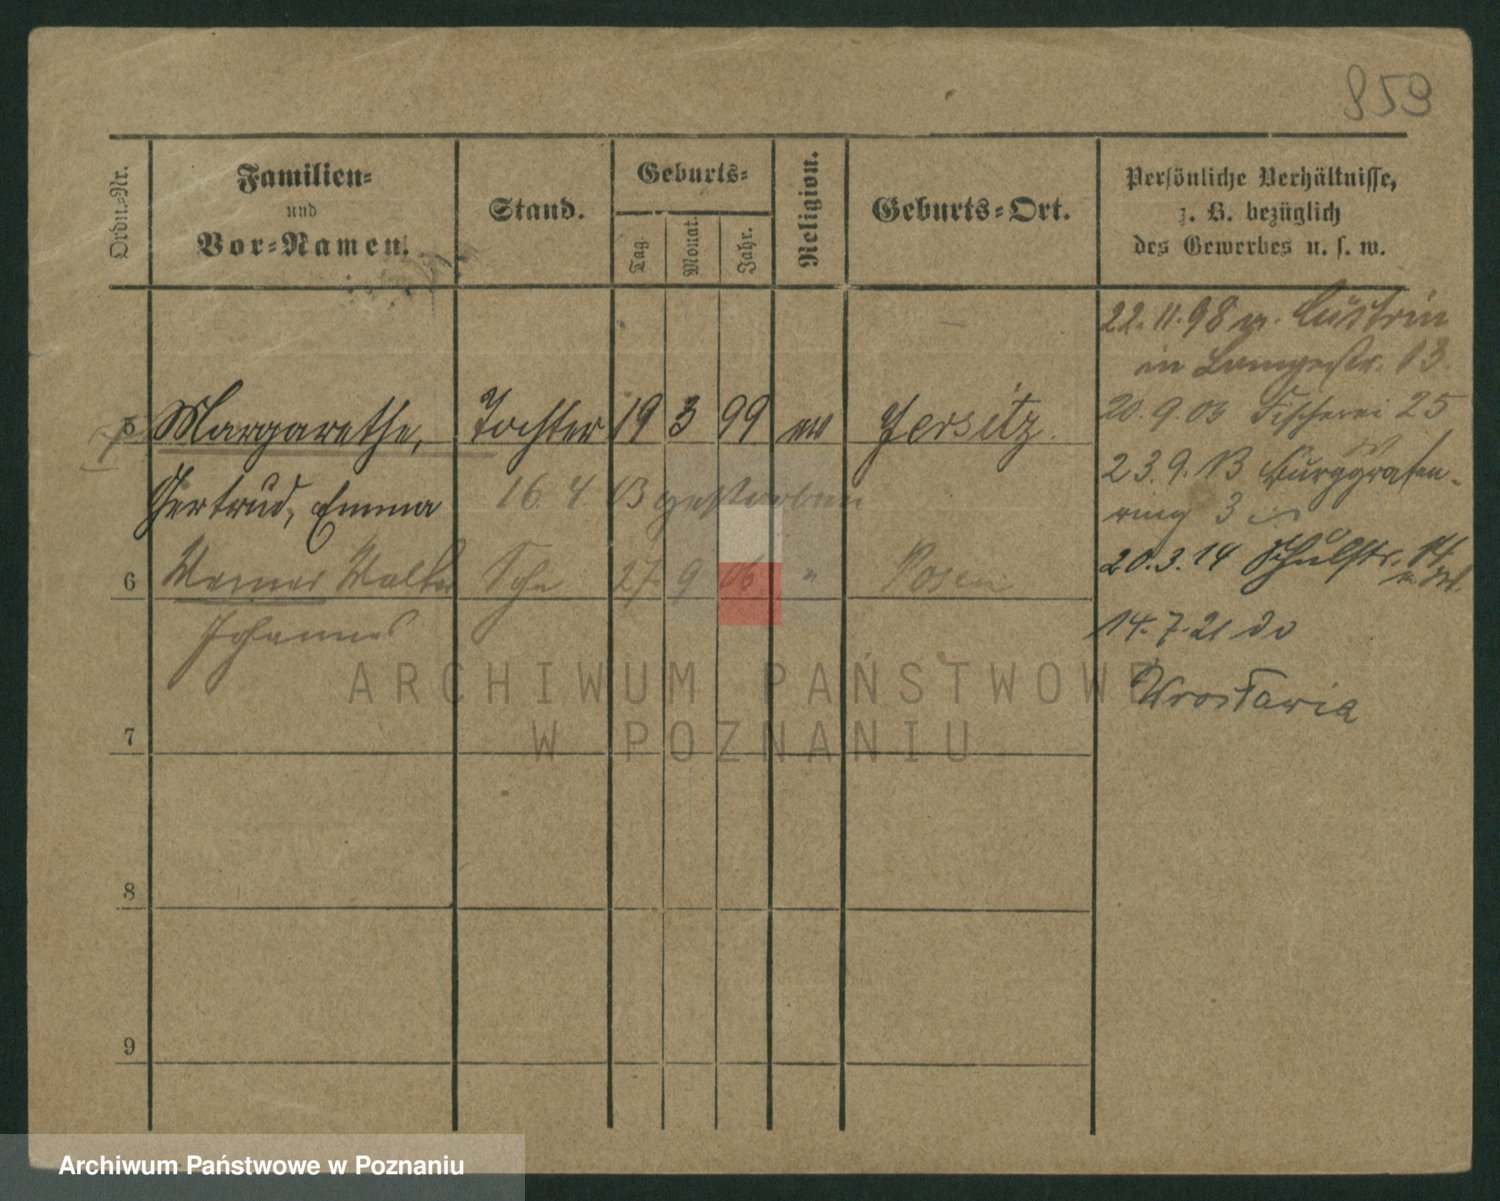 859
Ordn.-Nr.
Familien-
und
Vor-Namen.
Stand.
Geburts-
Tag.
Monat.
Jahr.
Religion.
Geburts-Ort.
Persönliche Verhältnisse,
z. B. bezüglich
des Gewerbes u. s. w.
22.11.98 v. Cüstrin
in Langestr. 13.
20.9.03 Fischerei 25
5 Margarethe, Tochter 19 3 99 ev Jersitz.
23.9.13 Burggrafen-
Gertrud, Emma 16. 4. 03 gestorben
ring 3
6 Werner Walter Sohn 27. 9 06 " Posen
20.3.14 Schulstr. 14
Johannes
14.7.21 do
Wrocławia
ARCHIWUM PAŃSTWOWE
W POZNANIU
7
8
9
Archiwum Państwowe w Poznaniu